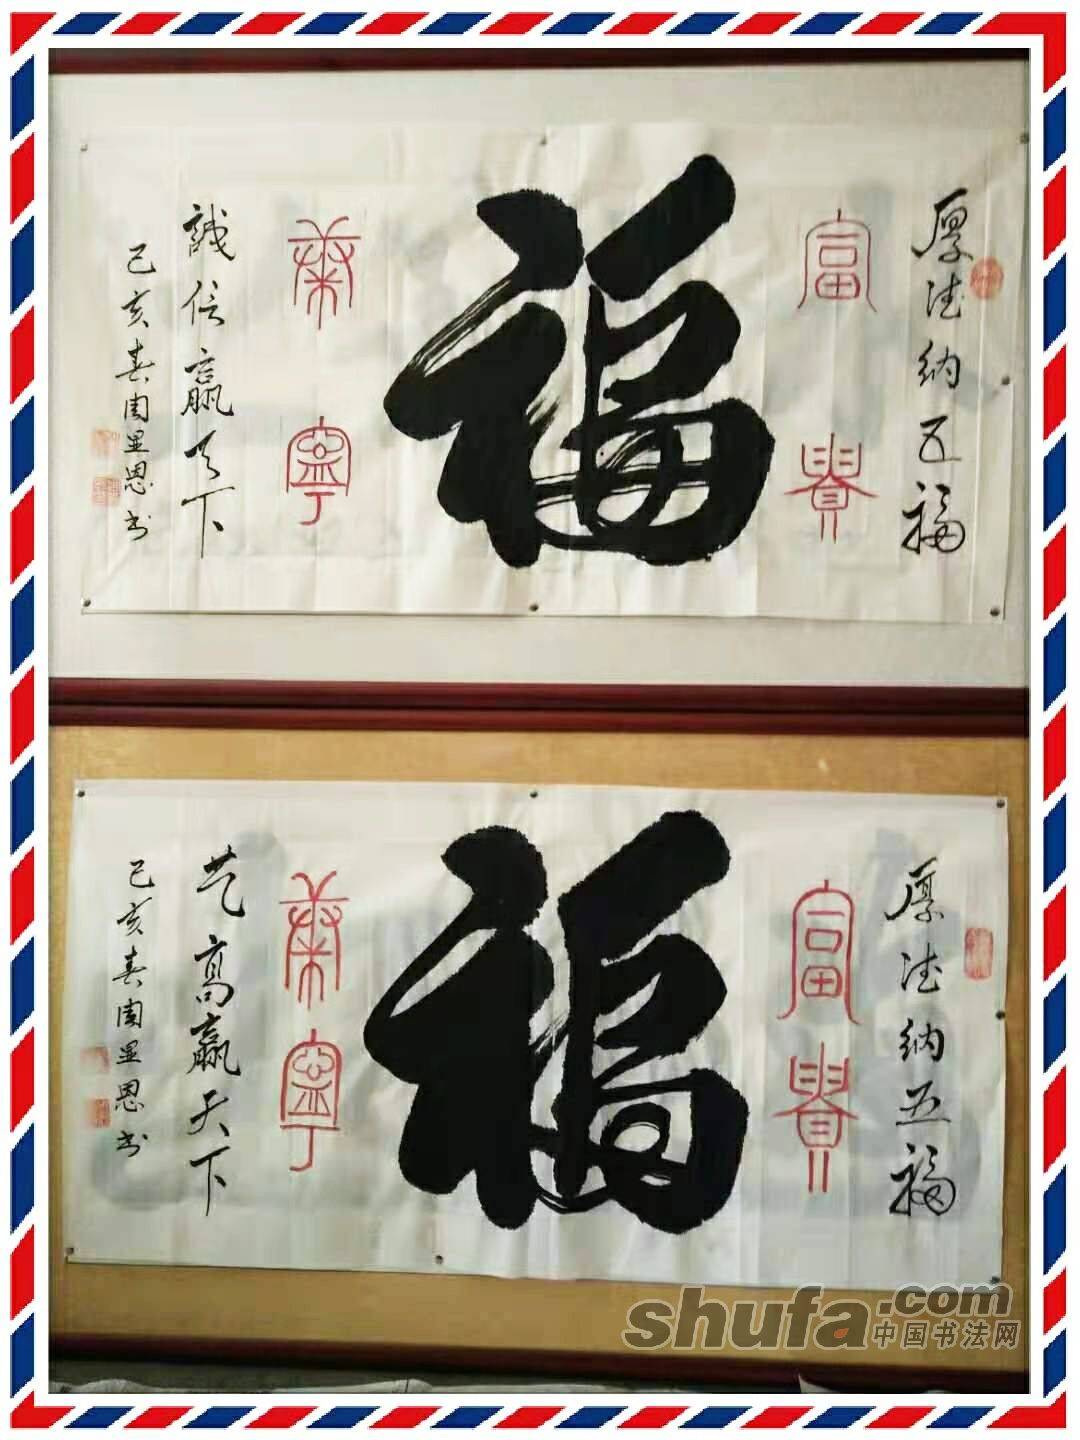 厚德纳五福
富貴
福
康寧
誠信贏天下
己亥春周显恩书
厚德纳五福
富貴
福
康寧
艺高贏天下
己亥春周显恩书
shufa.com
中国书法网